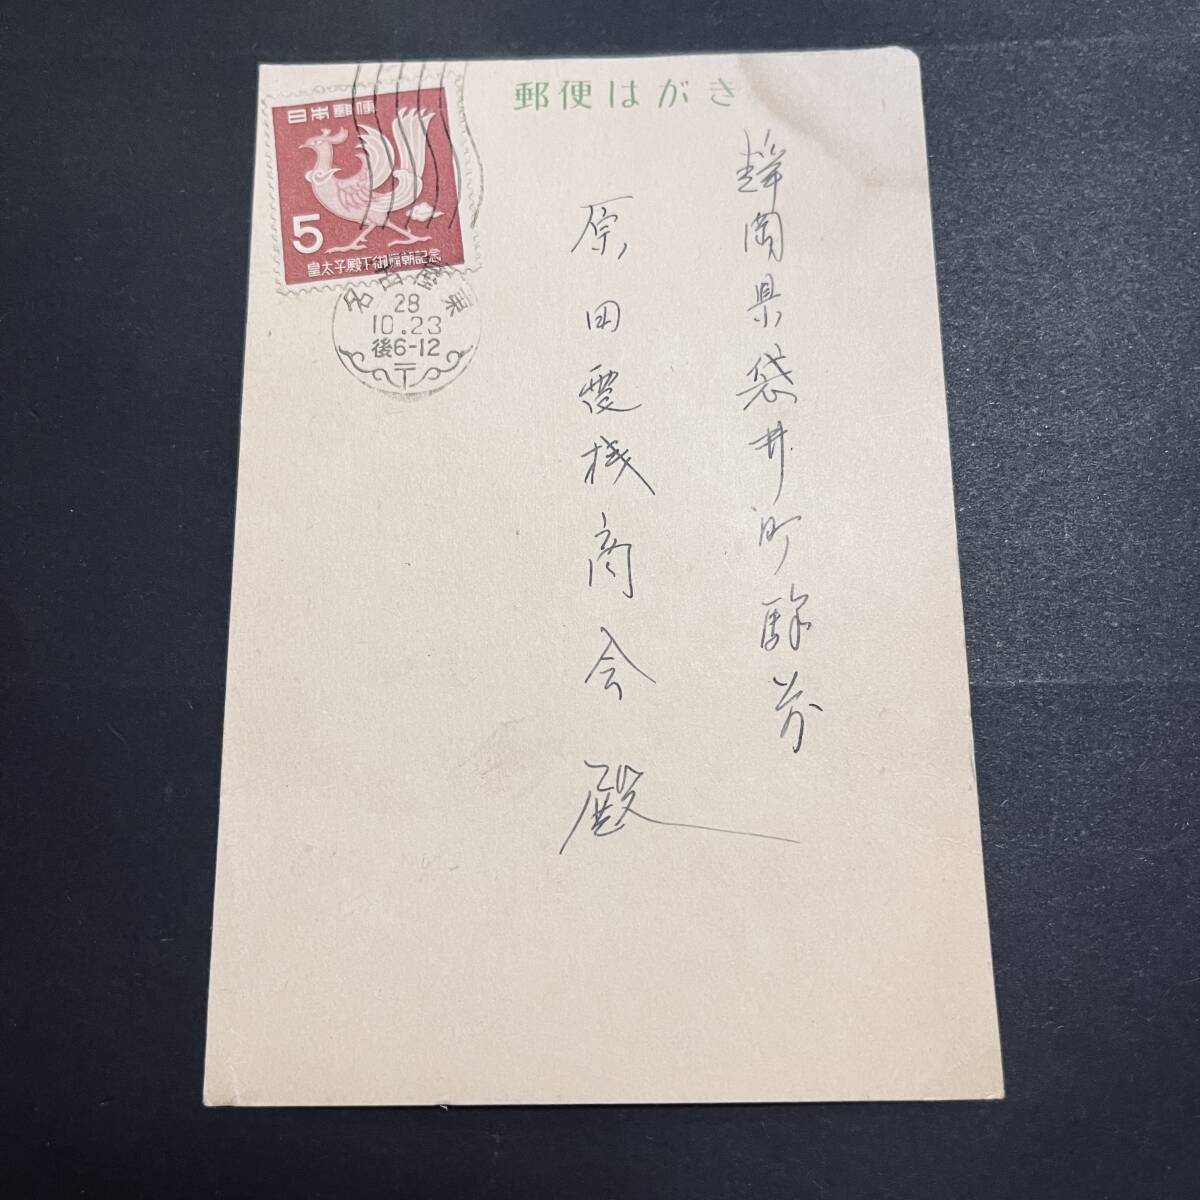 郵便はがき
日本郵便
5
皇太子殿下御帰朝記念
名古屋東
28
10.23
後6-12
〒
静岡県袋井町駅前
原田電機商会殿